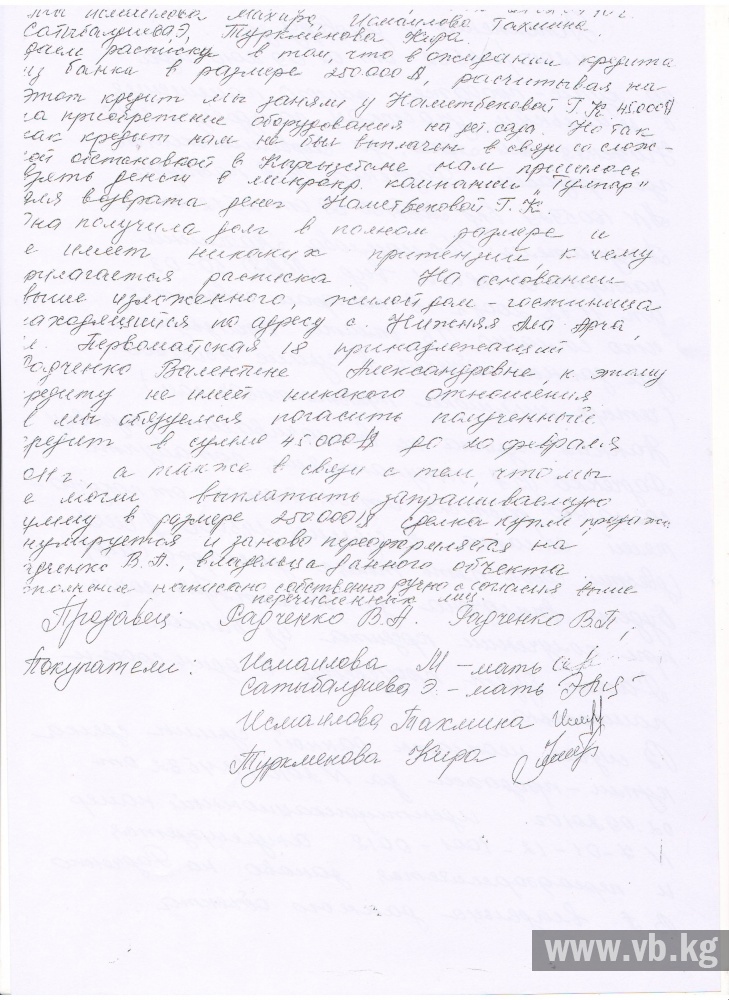 мы Исмаилова Махира, Исмаилова Тахмина
Сатыбалдиева Э, Туркменова Кира.
даем расписку в том, что в ожидании кредита
из банка в размере 250000$, рассчитывая на
этот кредит мы заняли у Наметбековой Г. К. 45.000$
на приобретение оборудования на дет. сада. Но так
как кредит нам не был выплачен в связи со слож-
ой обстановкой в Кыргызстане нам пришлось
взять деньги в микрокр. компании "Тулпар"
для возврата денег Наметбековой Г. К.
Она получила долг в полном размере и
е имеет никаких притензий к чему
рилагается расписка. На основании
выше изложенного, жилой дом - гостиница
находящийся по адресу с. Нижняя Ала-Арча,
л. Первомайская 18 принадлежащий
Радченко Валентине Александровне, к этому
кредиту не имеет никакого отношения
и мы обязуемся погасить полученный
кредит в сумме 45.000$ до 20 февраля
011 г. а также в связи с тем, что мы
е могли выплатить запрашиваемую
умму в размере 250000$ сделка купли продажи
нулируется и заново переоформляется на
адченко В. А., владельца данного объекта
ополнение написано собственно ручно с согласия выше
перечисленных лиц.
Продавец: Радченко В. А. Радченко В.П,
Покупатели: Исмаилова М - мать
Сатыбалдиева Э. - мать
Исмаилова Тахмина
Туркменова Кира
www.vb.kg